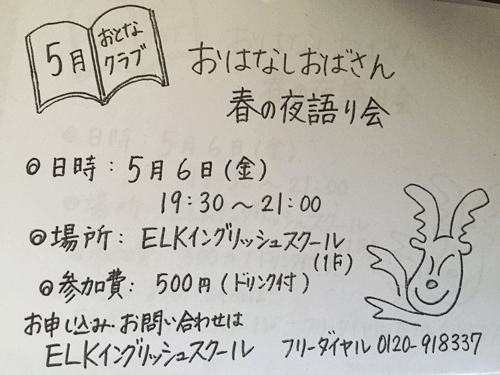 5月
おとなクラブ
おはなしおばさん
春の夜語り会
◎日時：5月6日(金)
19:30～21:00
◎場所：ELKイングリッシュスクール
(1F)
◎参加費：500円(ドリンク付)
お申し込み・お問い合わせは
ELKイングリッシュスクール フリーダイヤル 0120-918337